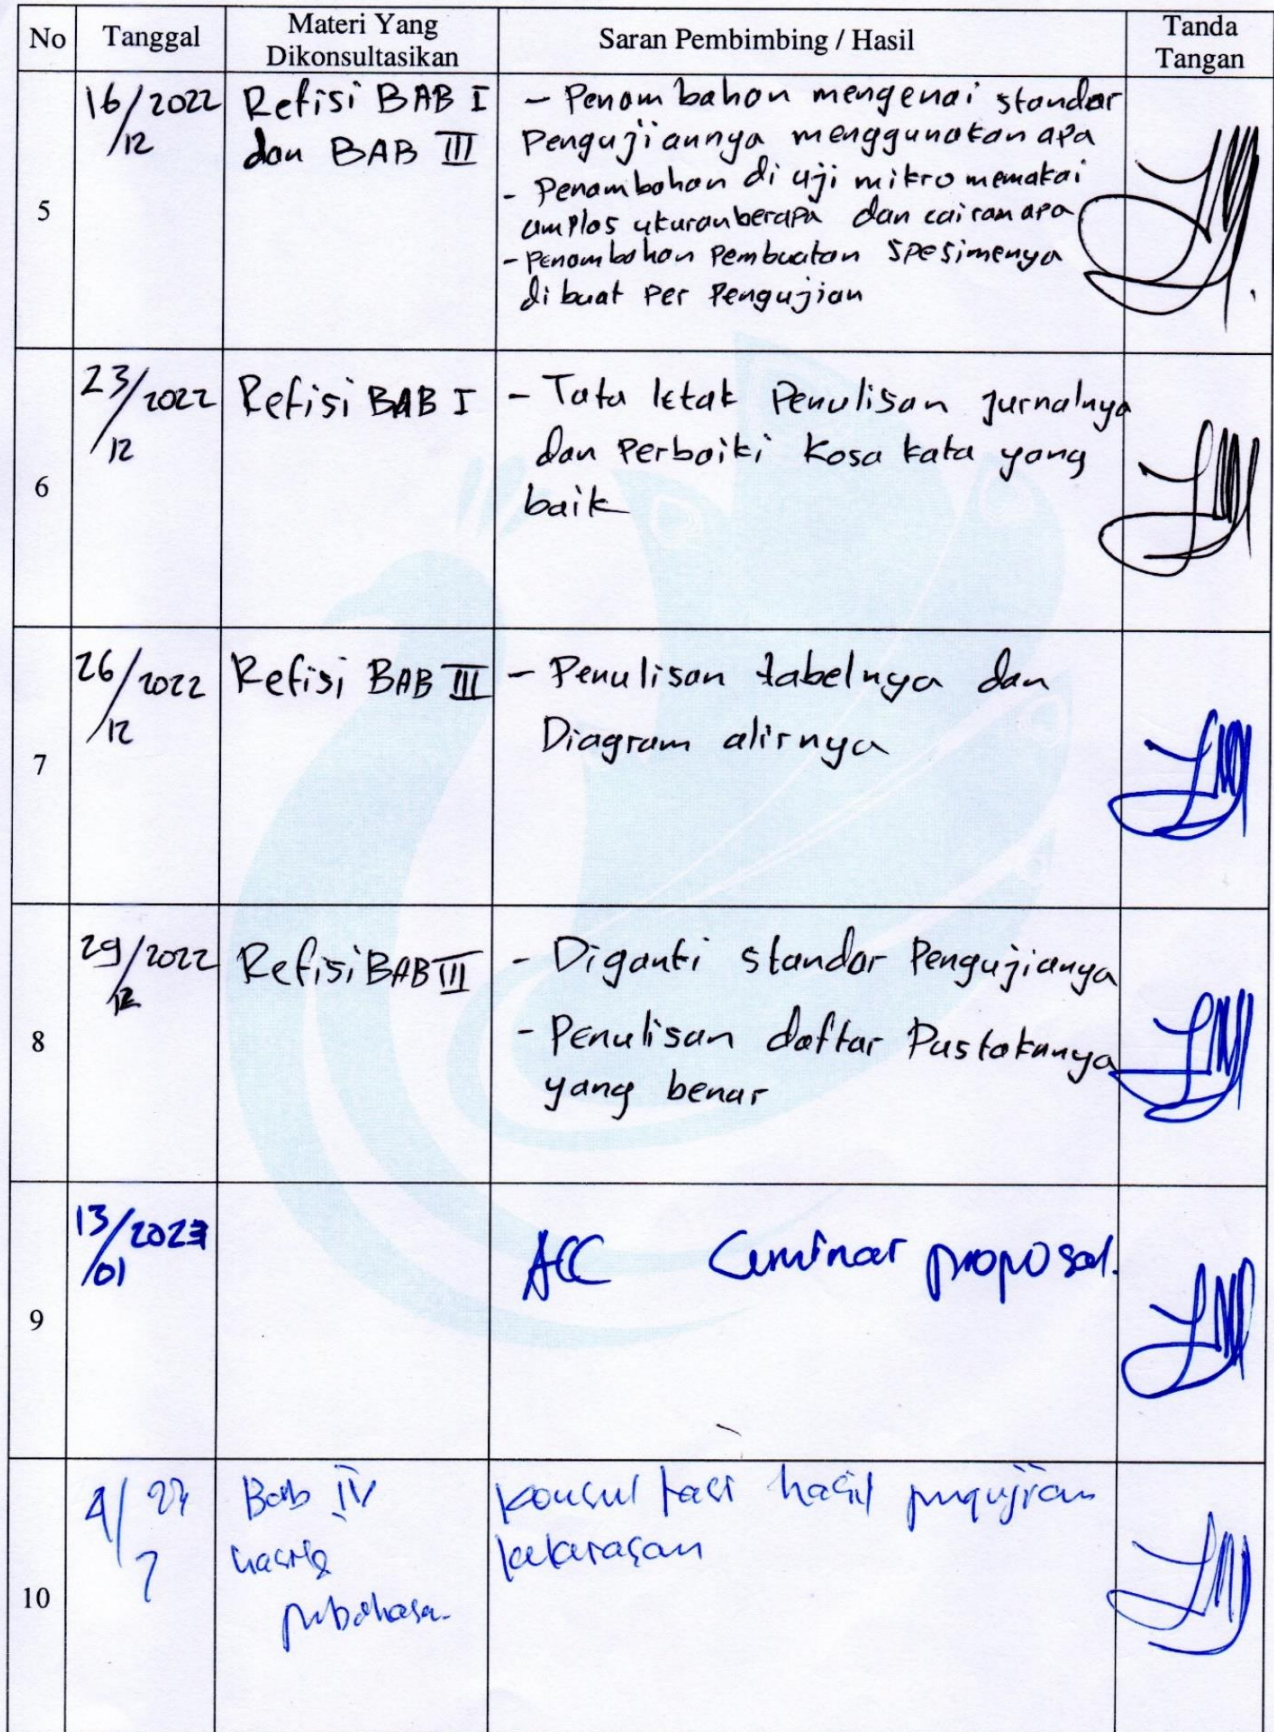 No Tanggal Materi Yang Dikonsultasikan Saran Pembimbing / Hasil Tanda Tangan
5
16/12/2022
Refisi BAB I
dan BAB III
- Penambahan mengenai standar
Pengujiannya menggunakan apa
- Penambahan di uji mikro memakai
amplas ukuran berapa dan cairan apa
- Penambahan Pembuatan Spesimenya
di buat Per Pengujian
6
23/12/2022
Refisi BAB I
- Tata letak Penulisan jurnalnya
dan Perbaiki Kosa kata yang
baik
7
26/12/2022
Refisi BAB III
- Penulisan tabelnya dan
Diagram alirnya
8
29/12/2022
Refisi BAB III
- Diganti standar Pengujianya
- Penulisan daftar Pustakanya
yang benar
9
13/01/2023
ACC Seminar proposal.
10
Bab IV
hasil
konsultasi hasil pengujian
kekerasan